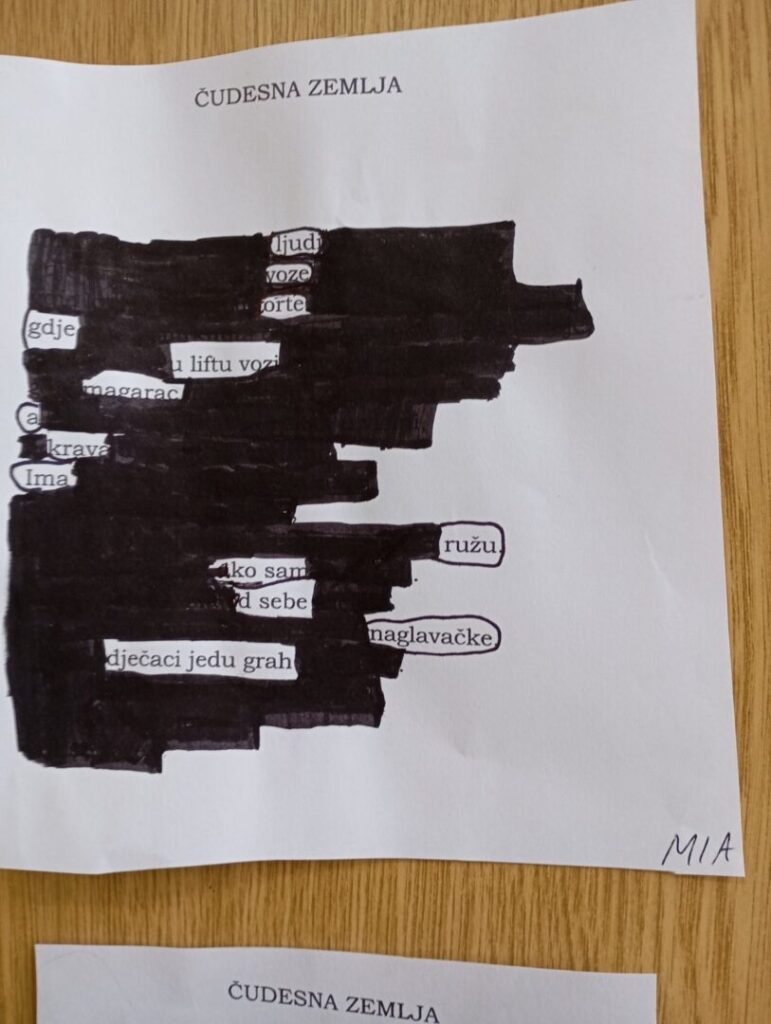 ČUDESNA ZEMLJA
ljudi
voze
orte
gdje
u liftu vozi
magarac
a
krava
Ima
ružu.
ko sam
d sebe
naglavačke
dječaci jedu grah
MIA
ČUDESNA ZEMLJA